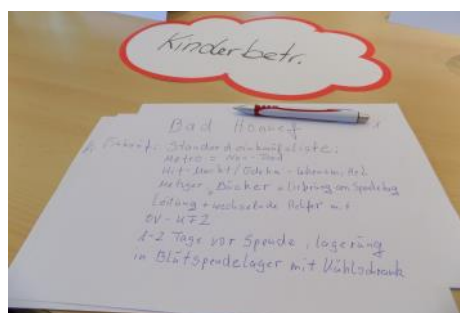 Kinderbetr.
Bad Honnef
Einkauf: Standardeinkaufsliste:
Metro = Non-Food
Hit-Markt/Edeka - Lebensm.
Metzger + Bäcker =
Leitung + wechselnde Helfer mit
OV-KFZ
1-2 Tage vor Spende, Lagerung
in Blutspendelager mit Kühlschrank